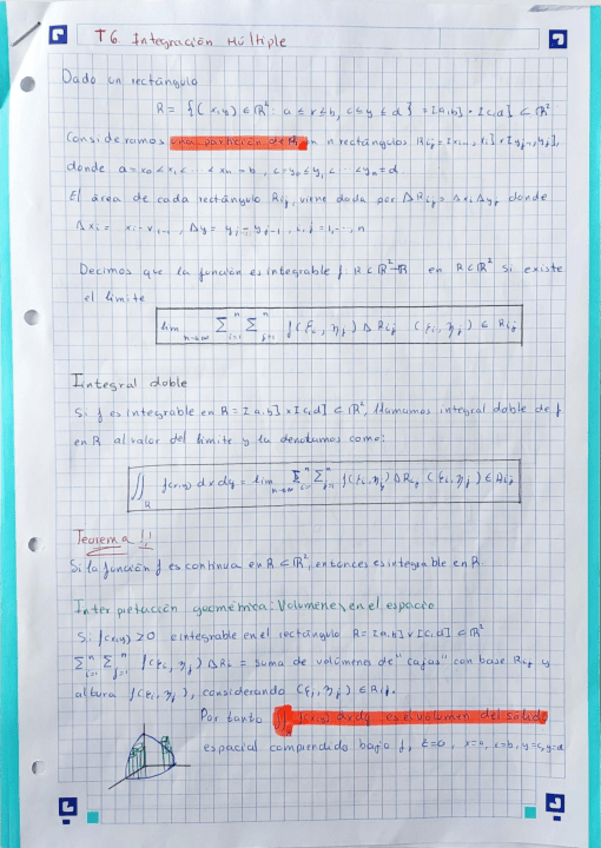 T6. Integración Múltiple
Dado un rectángulo
R = {(x,y) ∈ ℝ²: a ≤ x ≤ b, c ≤ y ≤ d} = [a,b] × [c,d] ⊂ ℝ²
Consideramos una partición de R, en n rectángulos Rij = [xi-1, xi] × [yj-1, yj],
donde a = x0 < x1 < ... < xn = b, c = y0 < y1 < ... < yn = d
El área de cada rectángulo Rij, viene dada por ΔRij = Δxi Δyj donde
Δxi = xi - xi-1, Δy = yj - yj-1, i,j = 1,...,n
Decimos que la función es integrable f: R⊂ℝ²→ℝ en R⊂ℝ² si existe
el límite
lim n→∞ Σ i=1 n Σ j=1 n f(ξi, ηj) ΔRij (ξi, ηj) ∈ Rij
Integral doble
Si f es integrable en R = [a,b] × [c,d] ⊂ ℝ², llamamos integral doble de f
en R al valor del límite y la denotamos como:
∬R f(x,y) dx dy = lim n→∞ Σ i=1 n Σ j=1 n f(ξi, ηj) ΔRij (ξi, ηj) ∈ Rij
Teorema !!
Si la función f es continua en R ⊂ ℝ², entonces es integrable en R.
Interpretación geométrica: Volumenes en el espacio
Si f(x,y) ≥ 0 e integrable en el rectángulo R = [a,b] × [c,d] ⊂ ℝ²
Σ i=1 n Σ j=1 n f(ξi, ηj) ΔRi = suma de volúmenes de "cajas" con base Rij y
altura f(ξi, ηj), considerando (ξi, ηj) ∈ Rij.
Por tanto ∬R f(x,y) dx dy es el volumen del sólido
espacial comprendido bajo f, z=0, x=a, x=b, y=c, y=d